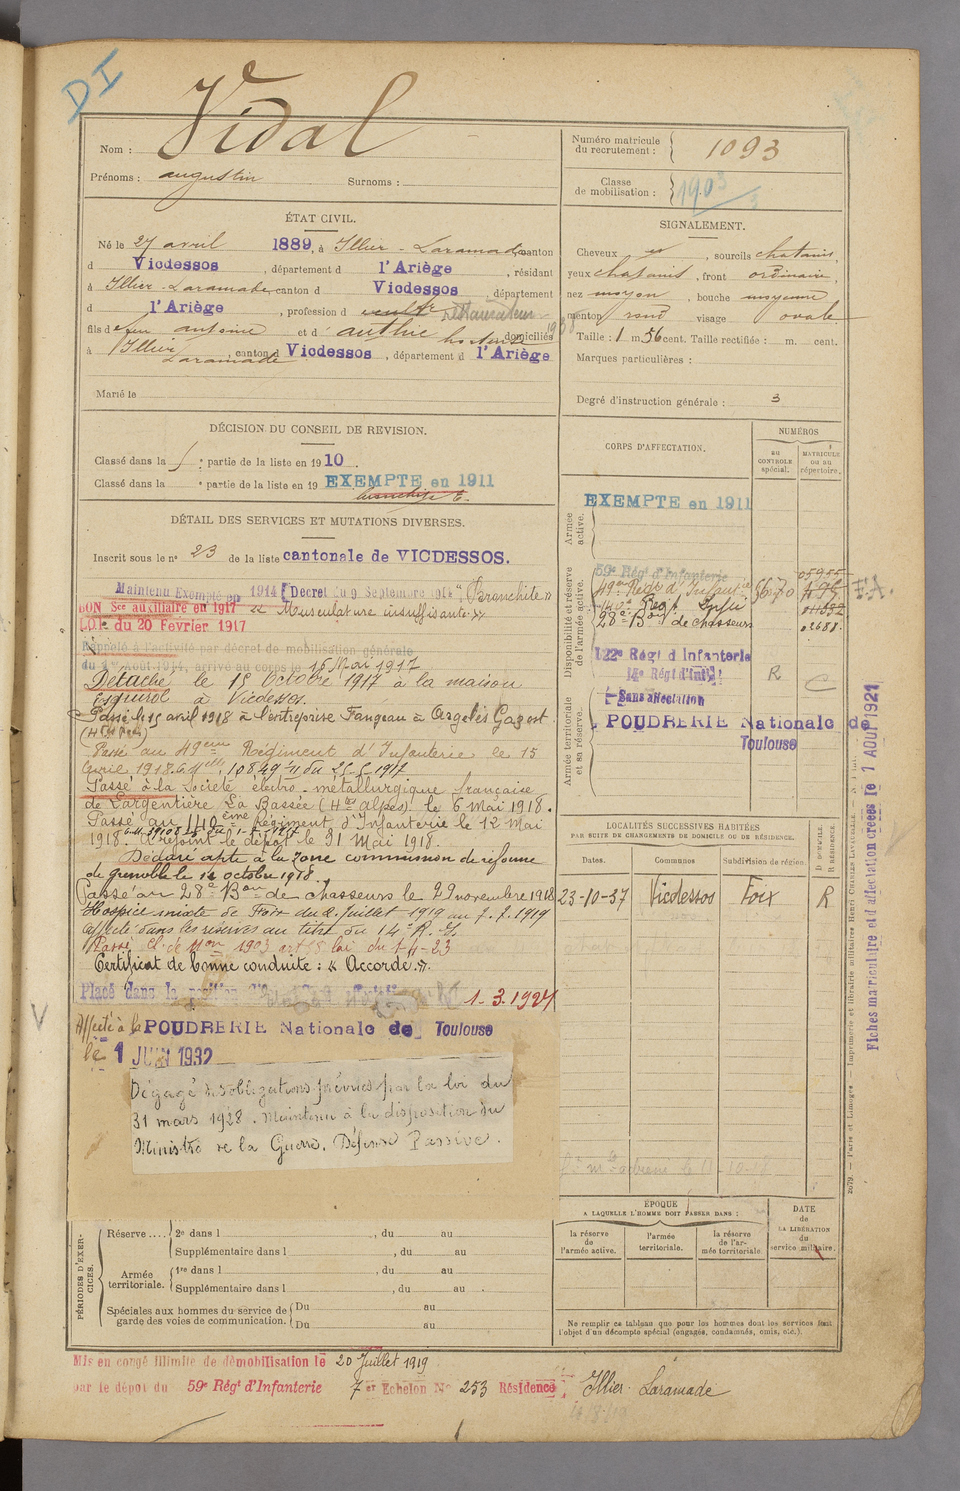 DI
Nom : Vidal
Prénoms : augustin Surnoms :
Numéro matricule du recrutement : 1093
Classe de mobilisation : 1903
ÉTAT CIVIL.
Né le 27 avril 1889, à Illier-Laramade, canton
d Vicdessos, département d l'Ariège, résidant
à Illier-Laramade, canton d Vicdessos, département
d l'Ariège, profession d
fils de feu antoine et d' authié hortense domiciliés
à Illier Laramade, canton d Vicdessos, département d l'Ariège
Marié le
SIGNALEMENT.
Cheveux , sourcils chatains,
yeux chatains, front ordinaire,
nez moyen, bouche moyenne
menton rond visage ovale
Taille : 1 m 56 cent. Taille rectifiée : m. cent.
Marques particulières :
Degré d'instruction générale : 3
DÉCISION DU CONSEIL DE REVISION.
Classé dans la partie de la liste en 1910.
Classé dans la partie de la liste en 19 EXEMPTE en 1911
DÉTAIL DES SERVICES ET MUTATIONS DIVERSES.
Inscrit sous le no 23 de la liste cantonale de VICDESSOS.
Maintenu Exempté en 1914 (Décret du 9 Septembre 1914) "Bronchite"
BON Sce auxiliaire en 1917 "Musculature insuffisante"
du 20 Février 1917
Rappelé à l'activité par décret de mobilisation générale
du 1er Août 1914, arrivé au corps le 15 Mai 1917
Détaché le 15 Octobre 1917 à la maison
Esquirol à Vicdessos.
Passé le 15 avril 1918 à l'entreprise Fangeau à Argelès Gazost
(Htes Pyr)
Passé au 49ème Régiment d'Infanterie le 15
Avril 1918.
Passé à la Société électro-métallurgique française
de L'argentière La Bassée (Htes alpes) le 6 Mai 1918.
Passé au 140ème Régiment d'Infanterie le 12 Mai
1918. Rejoint le dépôt le 31 Mai 1918.
Déclaré apte à la zone commission de réforme
de grenoble le 14 octobre 1918.
Passé au 28e Bon de chasseurs le 29 novembre 1918
Hospice mixte de Foix du 2 Juillet 1919 au 7.7.1919
affecté dans les réserves au titre du 14e R.I.
Passé cl. de Mon 1903 art 58 loi du 1-4-23
Certificat de bonne conduite : "Accordé".
Placé dans la position 1-3.1927
Affecté à la POUDRERIE Nationale de Toulouse
le 1 JUIN 1932
Dégagé des obligations prévues par la loi du
31 mars 1928. Maintenu à la disposition du
Ministre de la Guerre. Défense Passive.
CORPS D'AFFECTATION.
NUMÉROS
au CONTROLE spécial.
MATRICULE ou au répertoire.
Armée active.
EXEMPTE en 1911
Disponibilité et réserve de l'armée active.
59e Régt d'Infanterie
49ème Régt d'Infanterie 5670
140e Regt Infie
28e Bon de chasseurs
122e Régt d'Infanterie
14e Régt d'Infie R
Sans affectation
Armée territoriale et sa réserve.
POUDRERIE Nationale de
Toulouse
LOCALITÉS SUCCESSIVES HABITÉES
PAR SUITE DE CHANGEMENTS DE DOMICILE OU DE RÉSIDENCE.
Dates. Communes Subdivision de région. D DOMICILE. R RÉSIDENCE.
23-10-37 Vicdessos Foix R
ÉPOQUE
A LAQUELLE L'HOMME DOIT PASSER DANS :
la réserve de l'armée active.
l'armée territoriale.
la réserve de l'armée territoriale
DATE de LA LIBÉRATION du service militaire.
Ne remplir ce tableau que pour les hommes dont les services font
l'objet d'un décompte spécial (engagés, condamnés, omis, etc.).
PÉRIODES D'EXERCICES.
Réserve.... 2e dans l , du au
Supplémentaire dans l , du au
Armée territoriale. 1re dans l , du au
Supplémentaire dans l , du au
Spéciales aux hommes du service de garde des voies de communication. Du au
Du au
Mis en congé illimité de démobilisation le 20 Juillet 1919
par le dépôt du 59e Régt d'Infanterie 7er Echelon No 253 Résidence Illier-Laramade
Fiches matriculaire et d'affectation créées le 1 AOUT 1921
2679. — Paris et Limoges. — Imprimerie et librairie militaires Henri CHARLES-LAVAUZELLE.